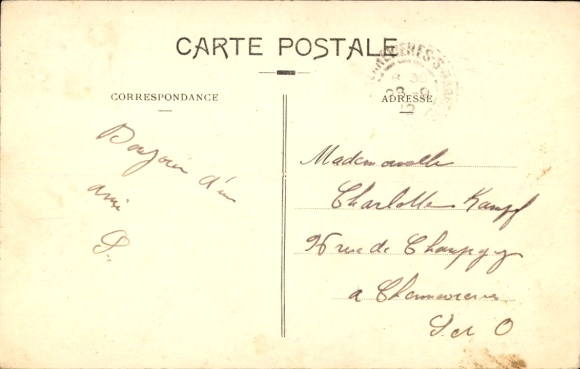 CARTE POSTALE
CORRESPONDANCE
ADRESSE
Bonjour d'un
ami
Mademoiselle
Charlotte Kampf
rue de Champigny
a Chennevieres
S. et O